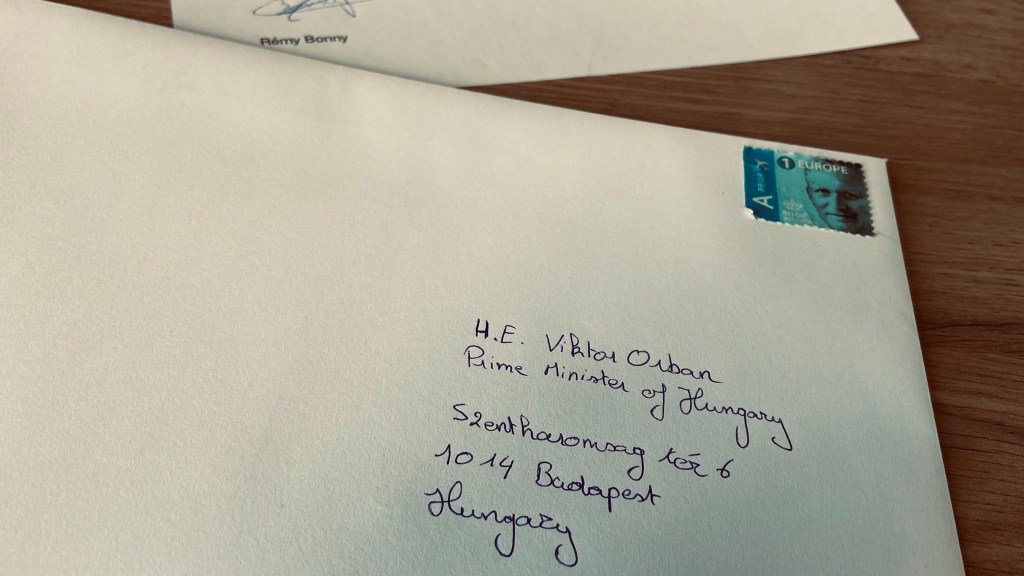 Rémy Bonny
1 EUROPE
A PRIOR
H.E. Viktor Orban
Prime Minister of Hungary
Szentharomsag tér 6
1014 Budapest
Hungary